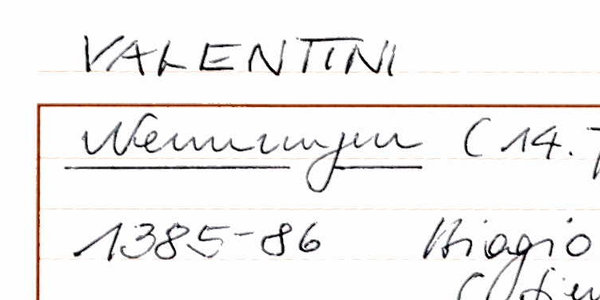 VALENTINI
Nennungen (14.
1385-86 Biagio